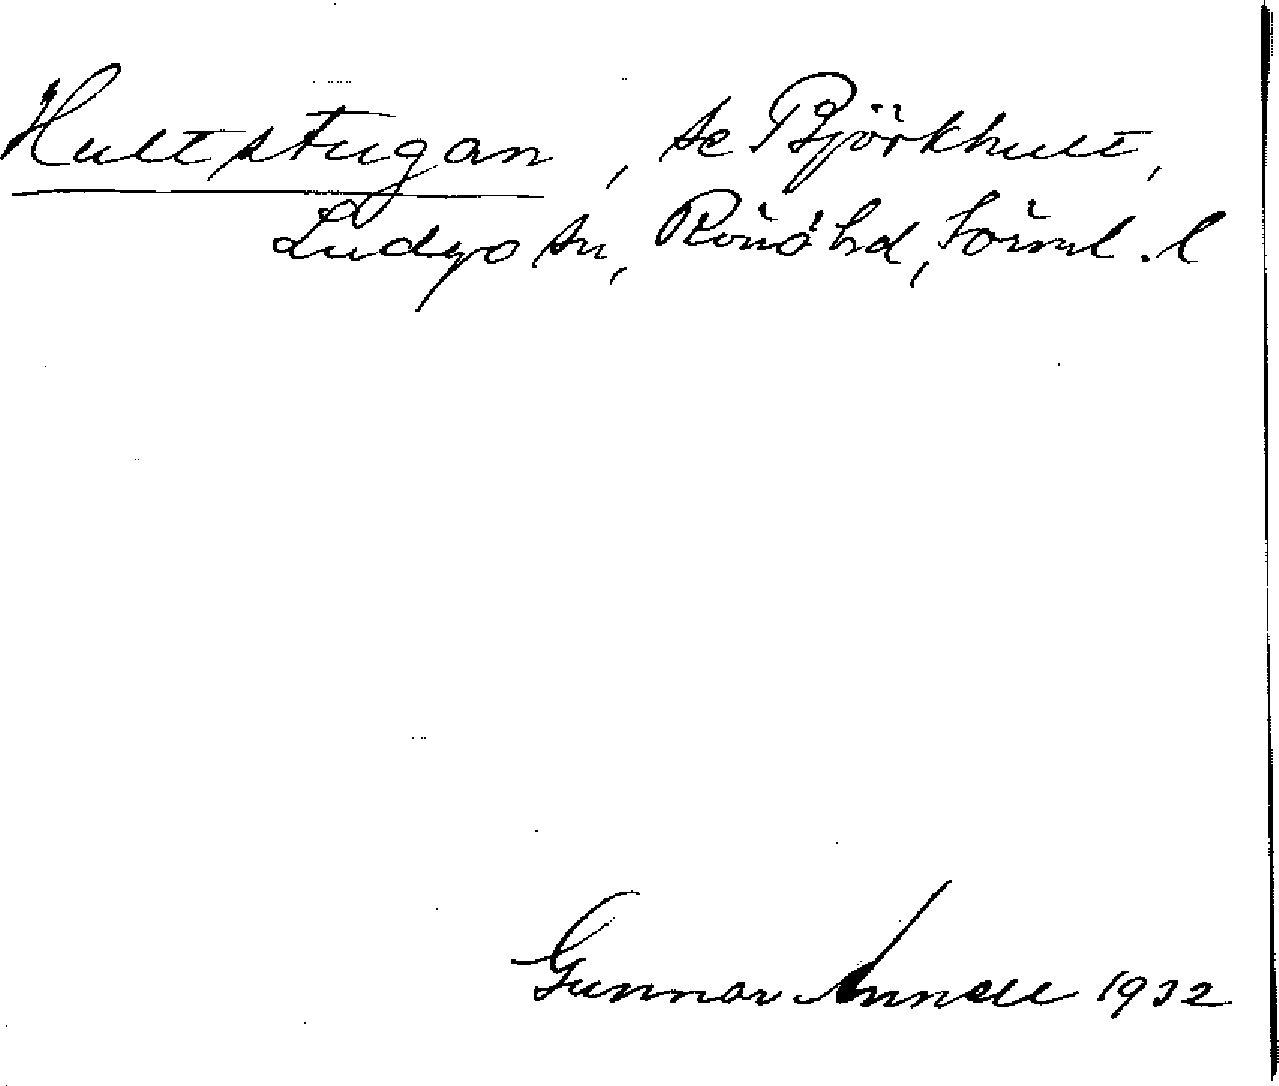 Hultstugan, se Björkhult,
Ludgo sn, Rönö hd, Sörml. l
Gunnar Annell 1932